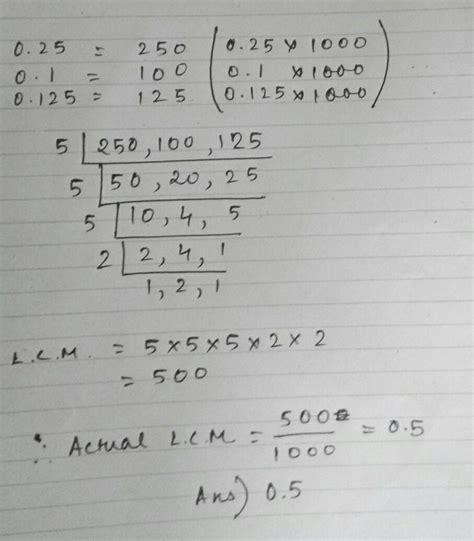 0.25 = 250 (0.25 × 1000
0.1 = 100 0.1 × 1000
0.125 = 125 0.125 × 1000)
5 | 250, 100, 125
5 | 50, 20, 25
5 | 10, 4, 5
2 | 2, 4, 1
1, 2, 1
L.C.M. = 5 × 5 × 5 × 2 × 2
= 500
∴ Actual L.C.M = 500 / 1000 = 0.5
Ans) 0.5